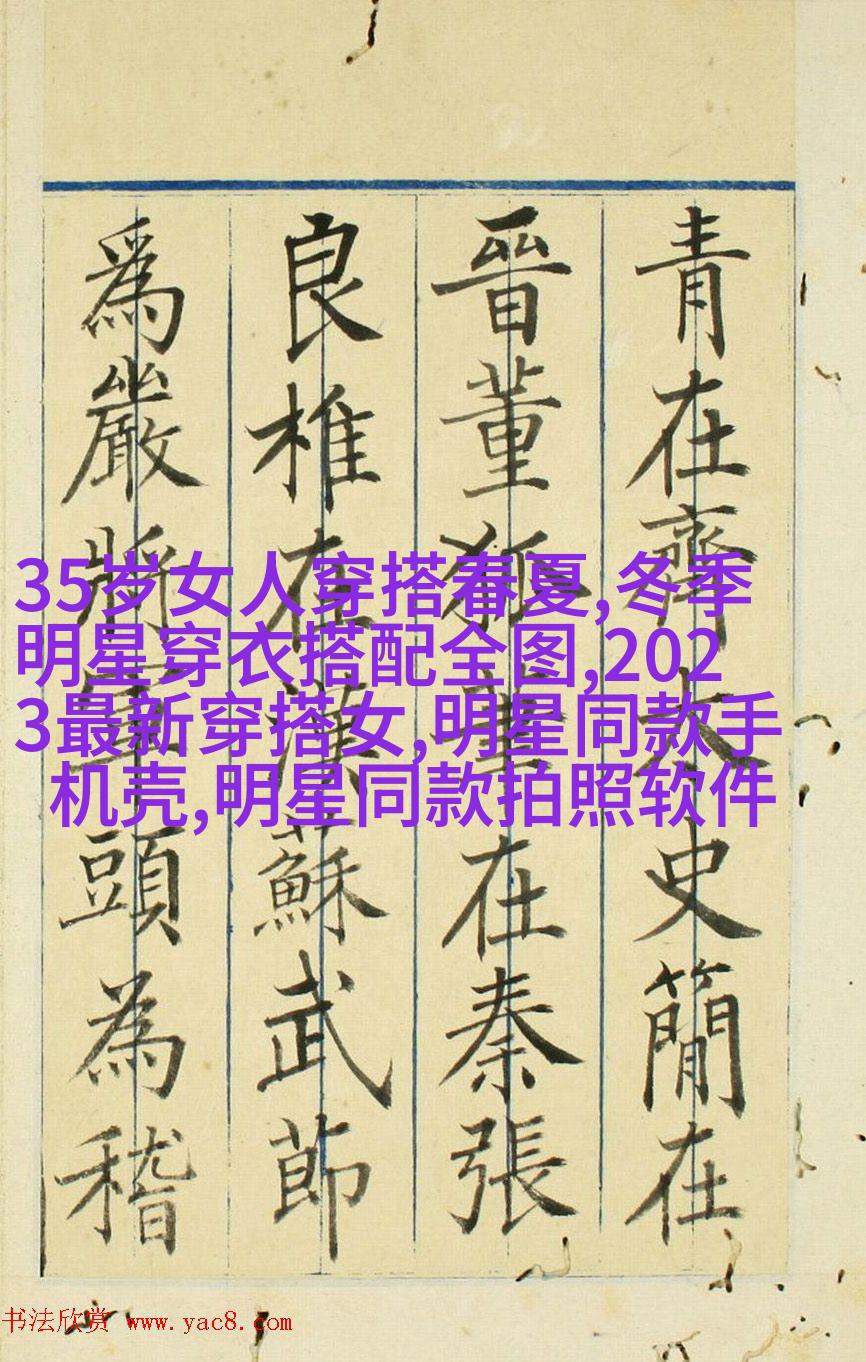 青在齊太史簡在
晉董狐筆在秦張
良椎在漢蘇武節
爲嚴將軍頭為稽
35岁女人穿搭春夏,冬季
明星穿衣搭配全图,202
3最新穿搭女,明星同款手
机壳,明星同款拍照软件
书法欣赏 www.yac8.com